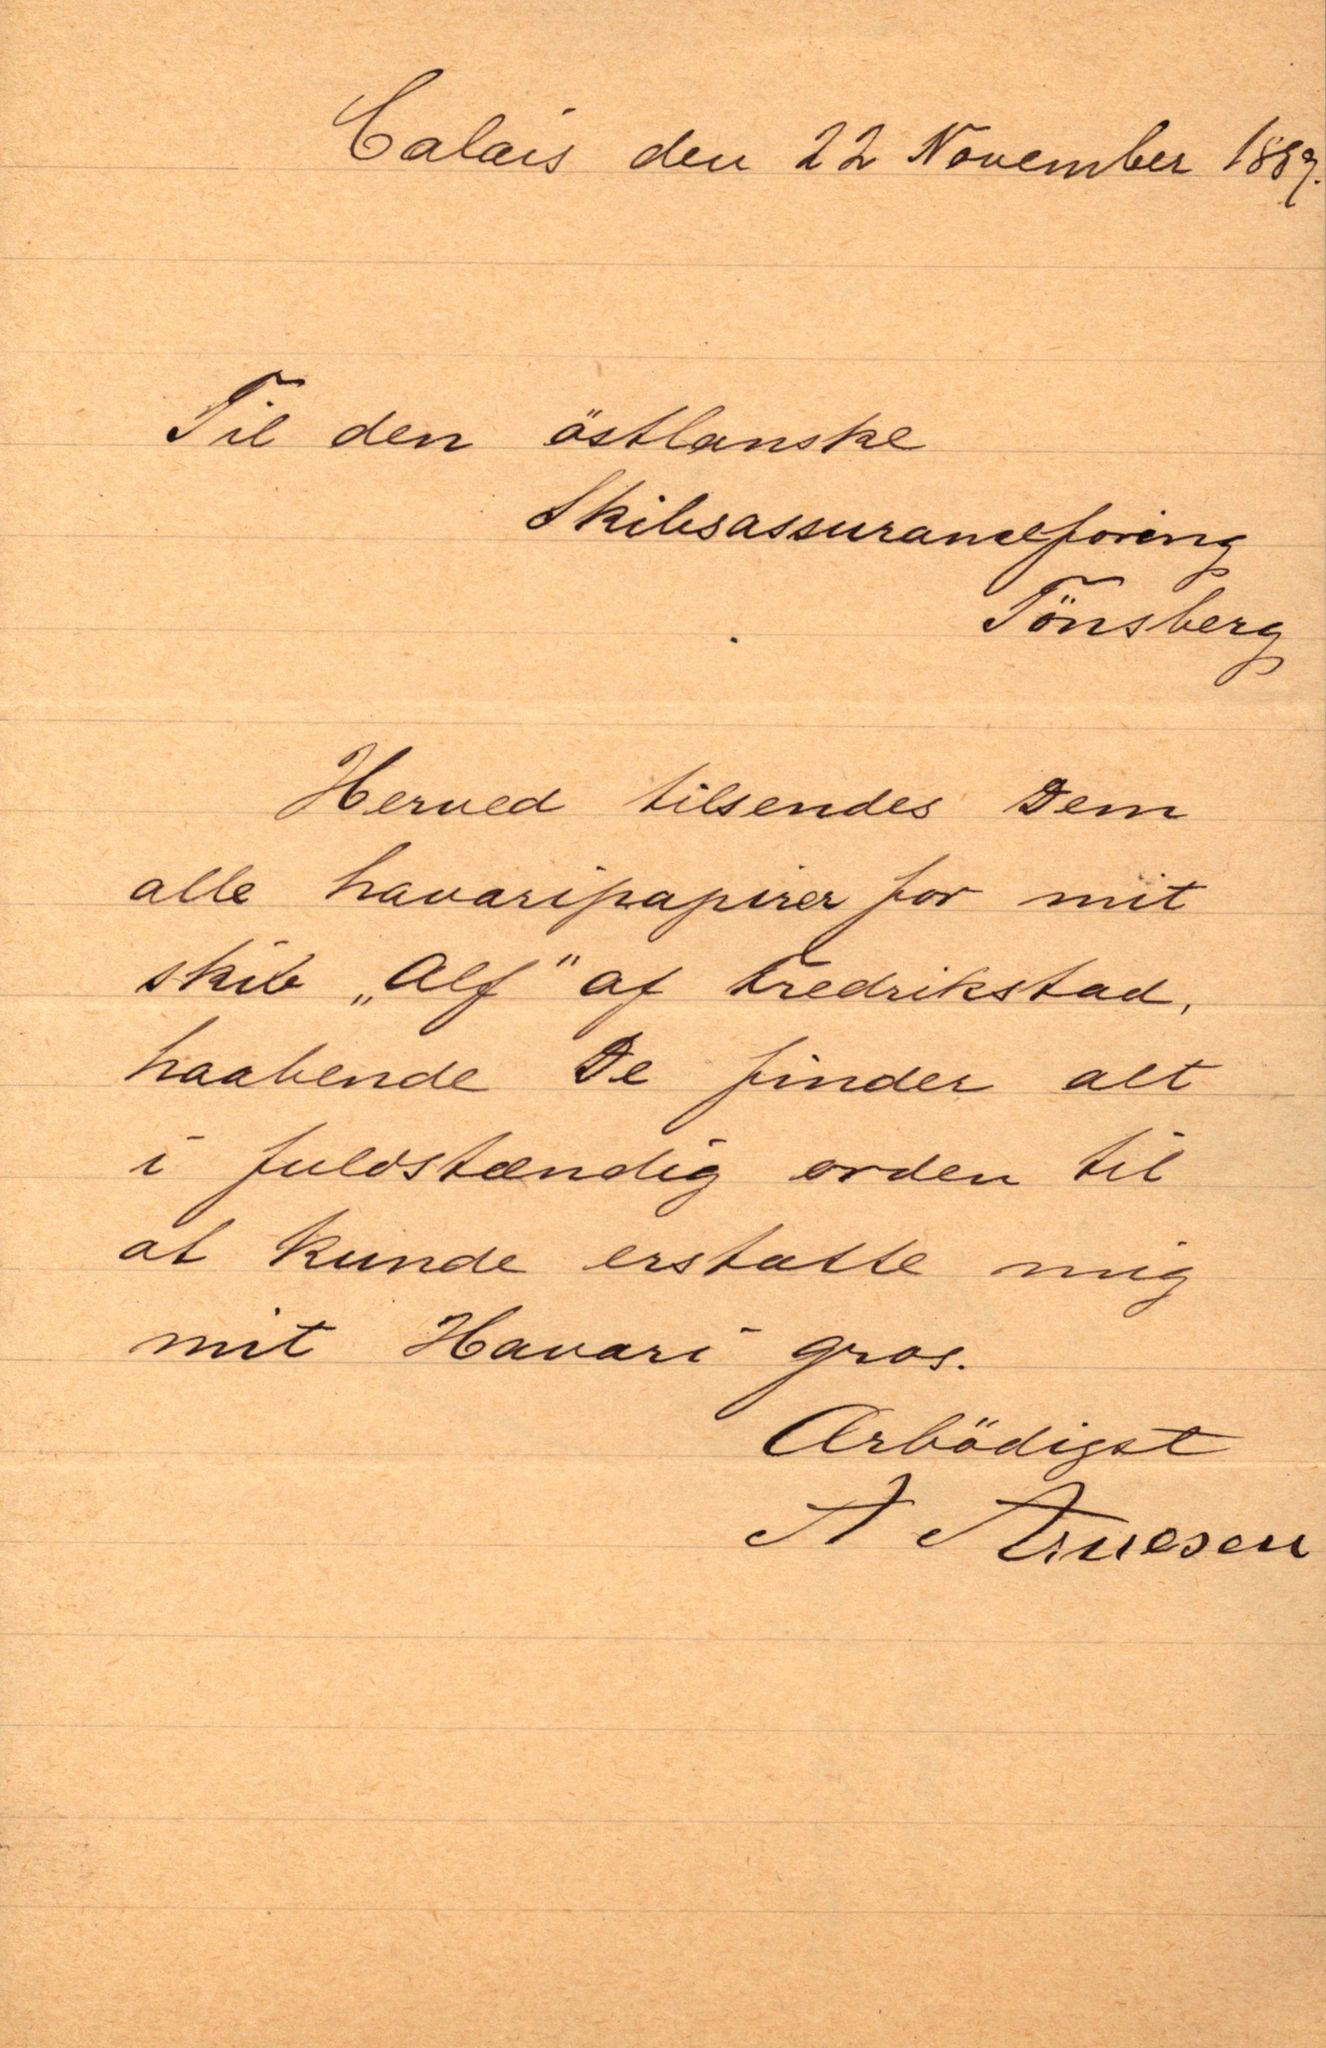 Calais den 22 November 1889.
Til den östlanske
Skibsassuranceforing
Tönsberg
Herved tilsendes Dem
alle havaripapirer for mit
skib „Alf" af Fredrikstad,
haabende De finder alt
i fuldstændig orden til
at kunde erstatte mig
mit Havari gros.
Ærbödigst
A Arnesen